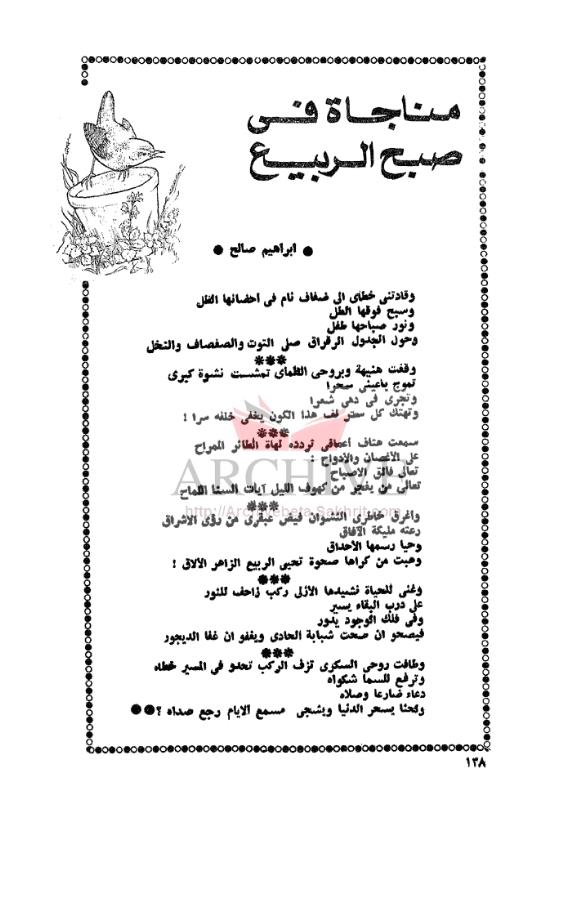 مناجاة فى
صبح الربيع
● ابراهيم صالح ●
وقادتنى خطاى الى ضفاف نام فى أحضانها الظل
وسبح فوقها الطل
ونور صباحها طفل
وحول الجدول الرقراق صلى التوت والصفصاف والنخل
***
وقفت هنيهة وبروحى الظماى تمشت نشوة كبرى
تموج باعينى سحرا
وتجرى فى دمى شعرا
وتهتك كل ستر لف هذا الكون يخفى خلفه سرا !
***
سمعت هتاف أعماقى تردده لهاة الطائر الممراح
على الأغصان والأدواح :
تعالى فالق الأصباح
تعالى من يفجر من كهوف الليل آيات السنا اللماح
***
واغرق خاطرى النشوان فيض عبقرى من رؤى الأشراق
رعته مليكة الآفاق
وحيا رسمها الأحداق
وهبت من كراها صحوة تحيى الربيع الزاهر الألاق !
***
وغنى للحياة نشيدها الأزلى ركب زاحف للنور
على درب البقاء يسير
وفى فلك الوجود يدور
فيصحو ان صحت شبابة الحادى ويغفو ان غفا الديجور
***
وطافت روحى السكرى تزف الركب تحدو فى المسير خطاه
وترفع للسما شكواه
دعاء ضارعا وصلاه
ولحنا يسحر الدنيا ويشجى مسمع الأيام رجع صداه ؟ ●●
١٣٨
ARCHIVE
http://Archivebeta.Sakhrit.com